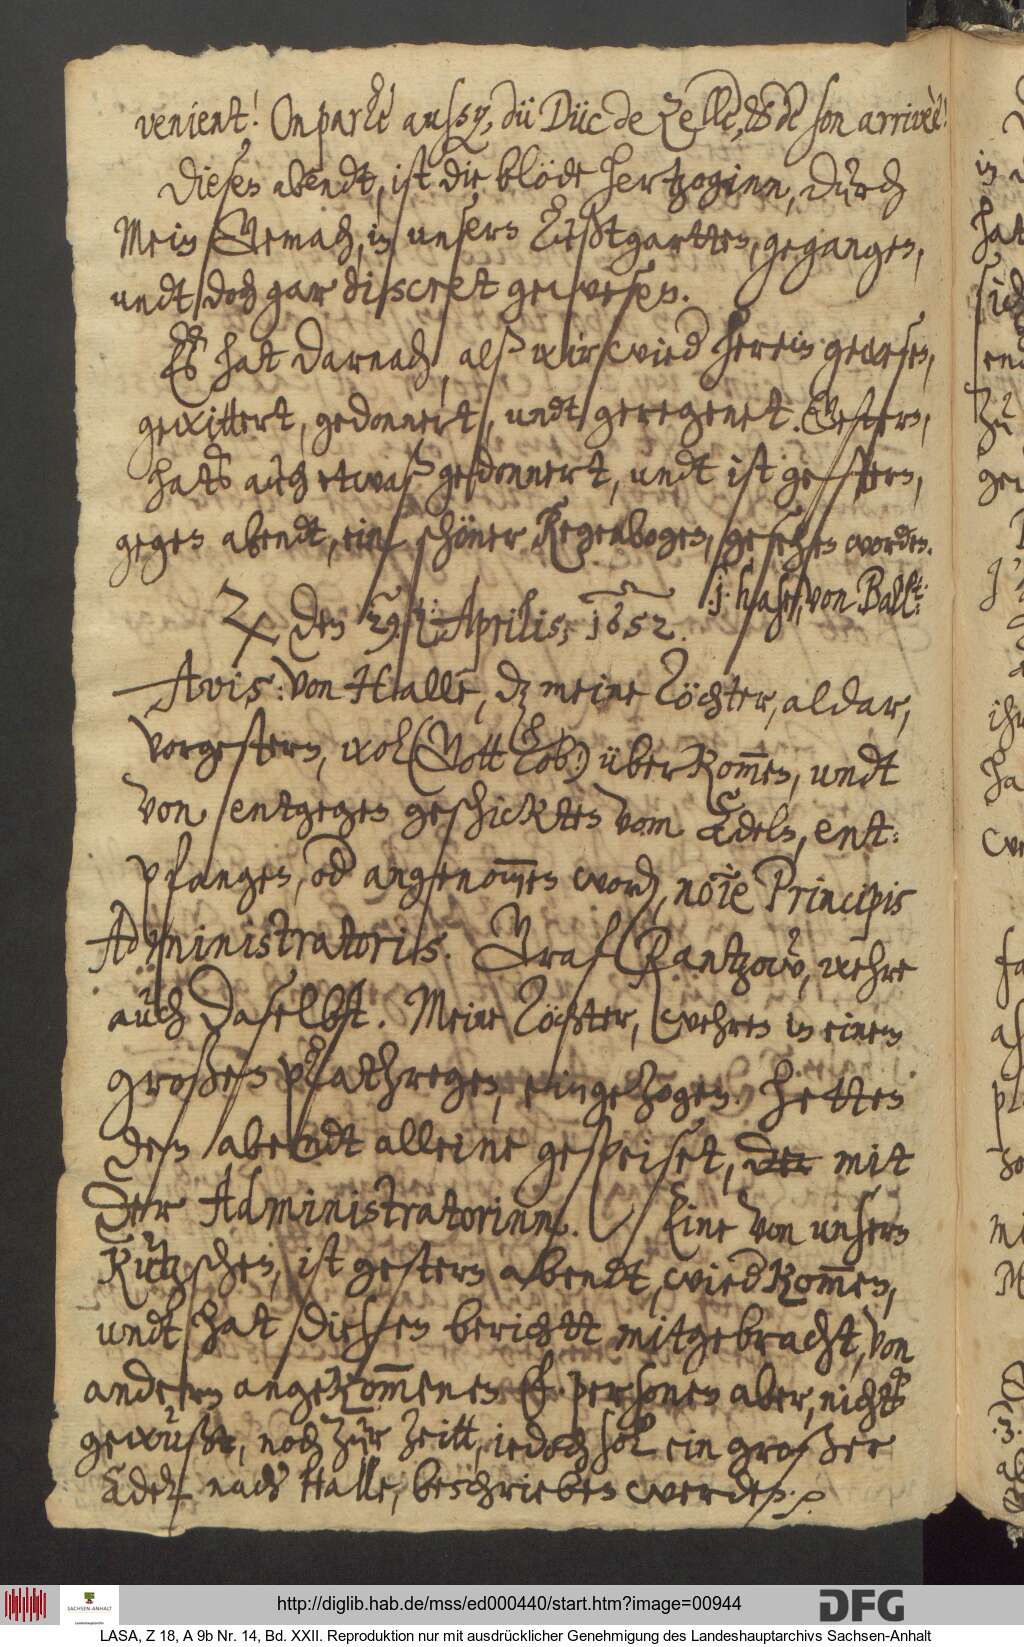 venient! On parle aussy, du Düc de Zelle, & de son arrivèe!
Diesen abendt, ist die blöde Hertzoginn, durch
Mein Gemach, in unsern Lustgartten, gegangen,
undt doch gar discret gewesen.
Es hat darnach, alß wir wied herein gewesen,
gewittert, gedonnert, undt geregenet. Gestern,
hats auch etwaß gedonnert, undt ist gestern,
gegen abendt, ein schöner Regenbogen, gesehen worden.
♃ den 29. t: Aprilis; 1652. .j. hasen von Ball:t:
Avis: von Halle, dz meine Töchter, aldar,
vorgestern, wol (Gott Lob!) überkom̅en, undt
von entgegen geschickten vom Adeln, ent:
pfangen, od angenom̅en word, noĩe Principis
Administratoris. Graf Rantzow, wehre
auch daselbst. Meine Töchter, wehren in einem
großen platzregen, eingezogen. Hetten
den abendt alleine gespeiset, mit
Der Administratorinn. Eine von unsern
Kutzschen, ist gestern abendt, wied kom̅en,
undt hat diesen bericht mitgebracht, von
andern angekom̅enen personen aber, nichts
gewust, noch zur zeitt, iedoch sol ein großer
Adel nach Halle, beschrieben werden.
http://diglib.hab.de/mss/ed000440/start.htm?image=00944
SACHSEN-ANHALT
Landeshauptarchiv
DFG
LASA, Z 18, A 9b Nr. 14, Bd. XXII. Reproduktion nur mit ausdrücklicher Genehmigung des Landeshauptarchivs Sachsen-Anhalt